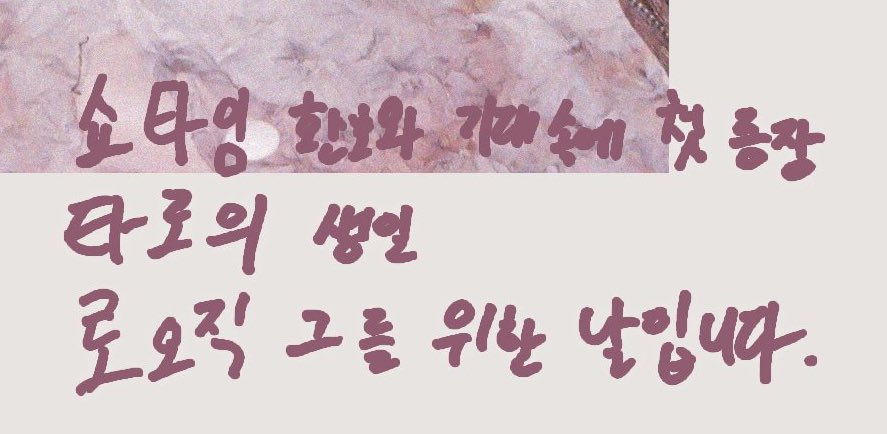 쇼타임 환호와 기대 속에 첫 등장
타로의 생일
로오직 그를 위한 날입니다.